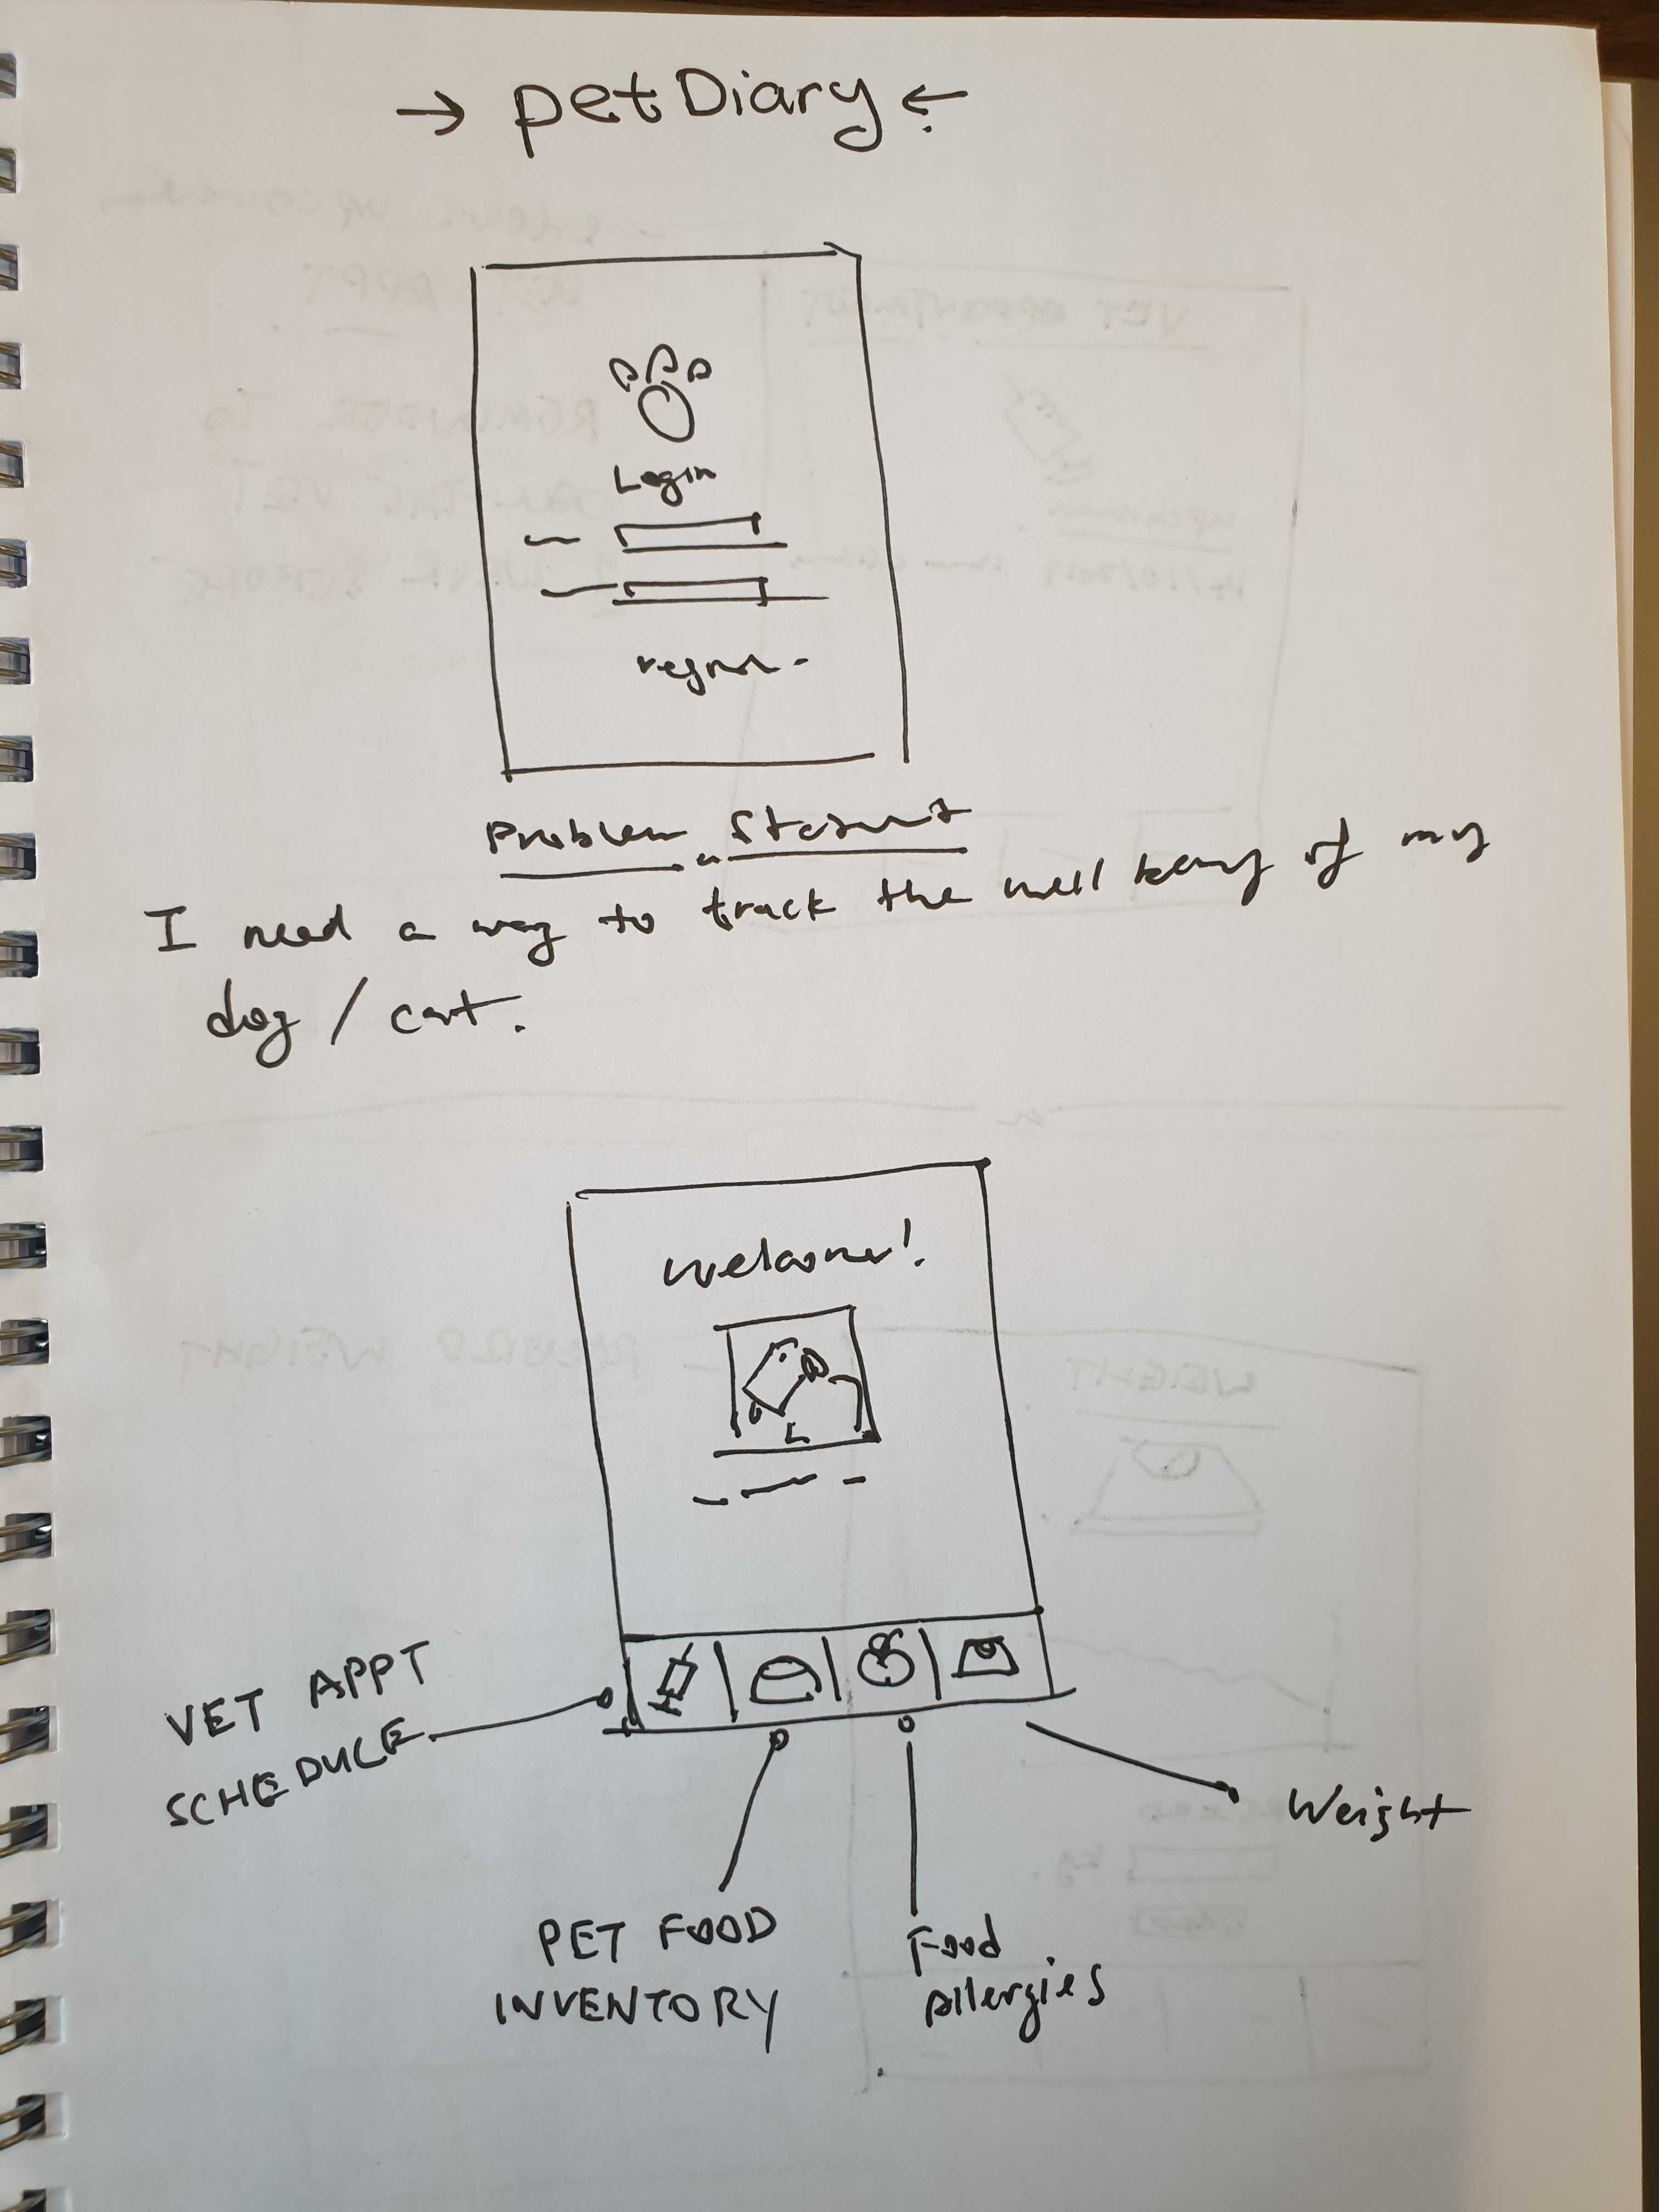 → petDiary ←
Login
Problem Statement
I need a way to track the well being of my
dog / cat.
Welcome!
VET APPT
SCHEDULE
Weight
PET FOOD
INVENTORY
Food
Allergies